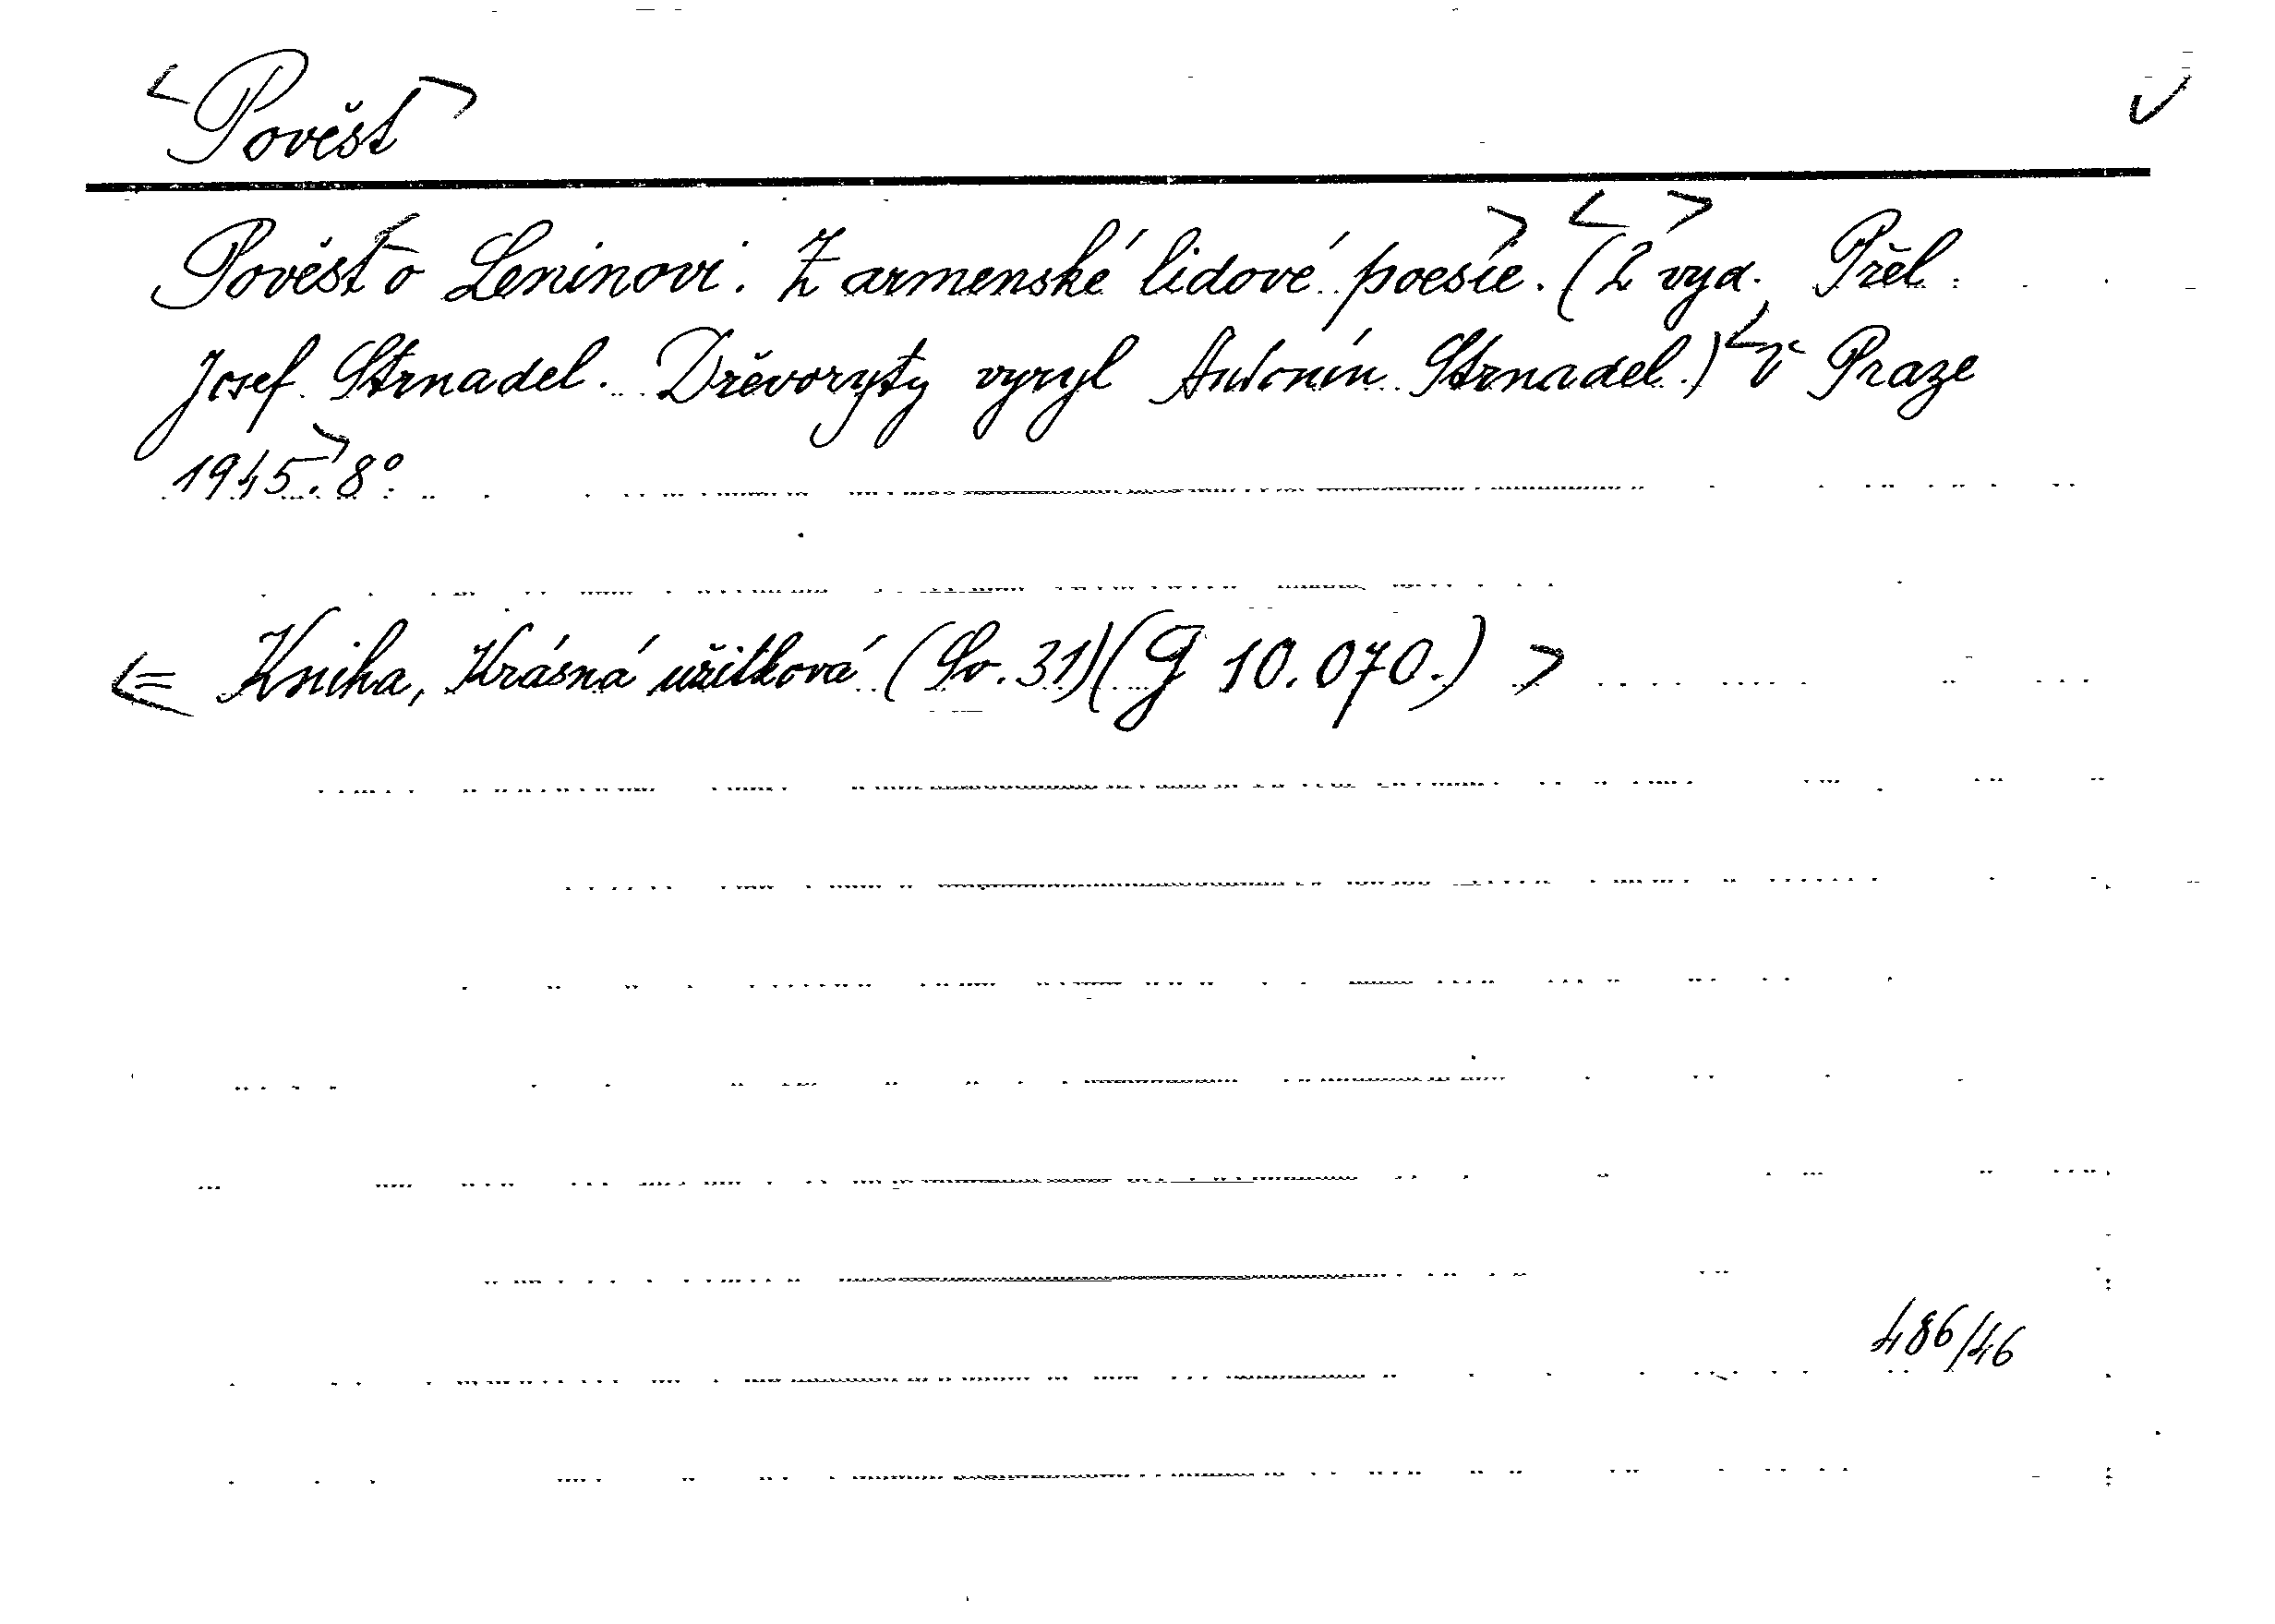 <Pověst>
Pověst o Leninovi. Z armenské lidové poesie. (2 vyd. Přel.
Josef Strnadel. Dřevoryty vyryl Antonín Strnadel.) V Praze
1945. 8°
<= Kniha, Krásná užitková (Sv. 31) (G 10.070.) >
486/46